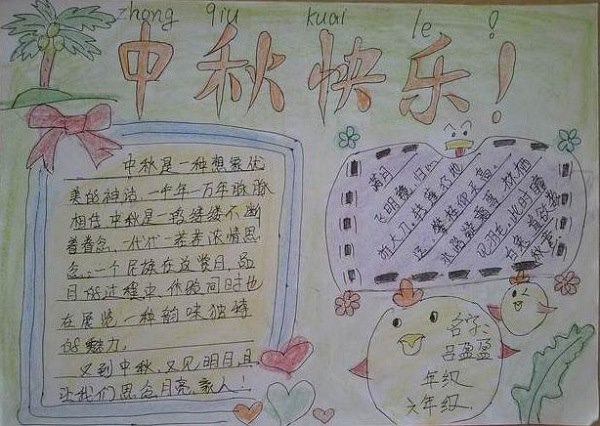 zhong qiu kuai le
中秋快乐!
中秋是一种想象优
美的神话,一千年一万年脉脉
相传,中秋是一路缕缕不断
着眷念,一代代一荐荐浓情思
念,一个民族在这赏月,品
月的过程中,体验同时也
在展览一种韵味独特
的魅力。
又到中秋,又见明月,且
让我们思念月亮,亲人!
满月
飞明镜,归心
折大刀。转蓬行地
远,攀桂仰天高。
水路疑霜雪,林栖
见羽毛。此时瞻
白兔,直欲数
秋毫。
名字:
吕盈盈
年级
六年级